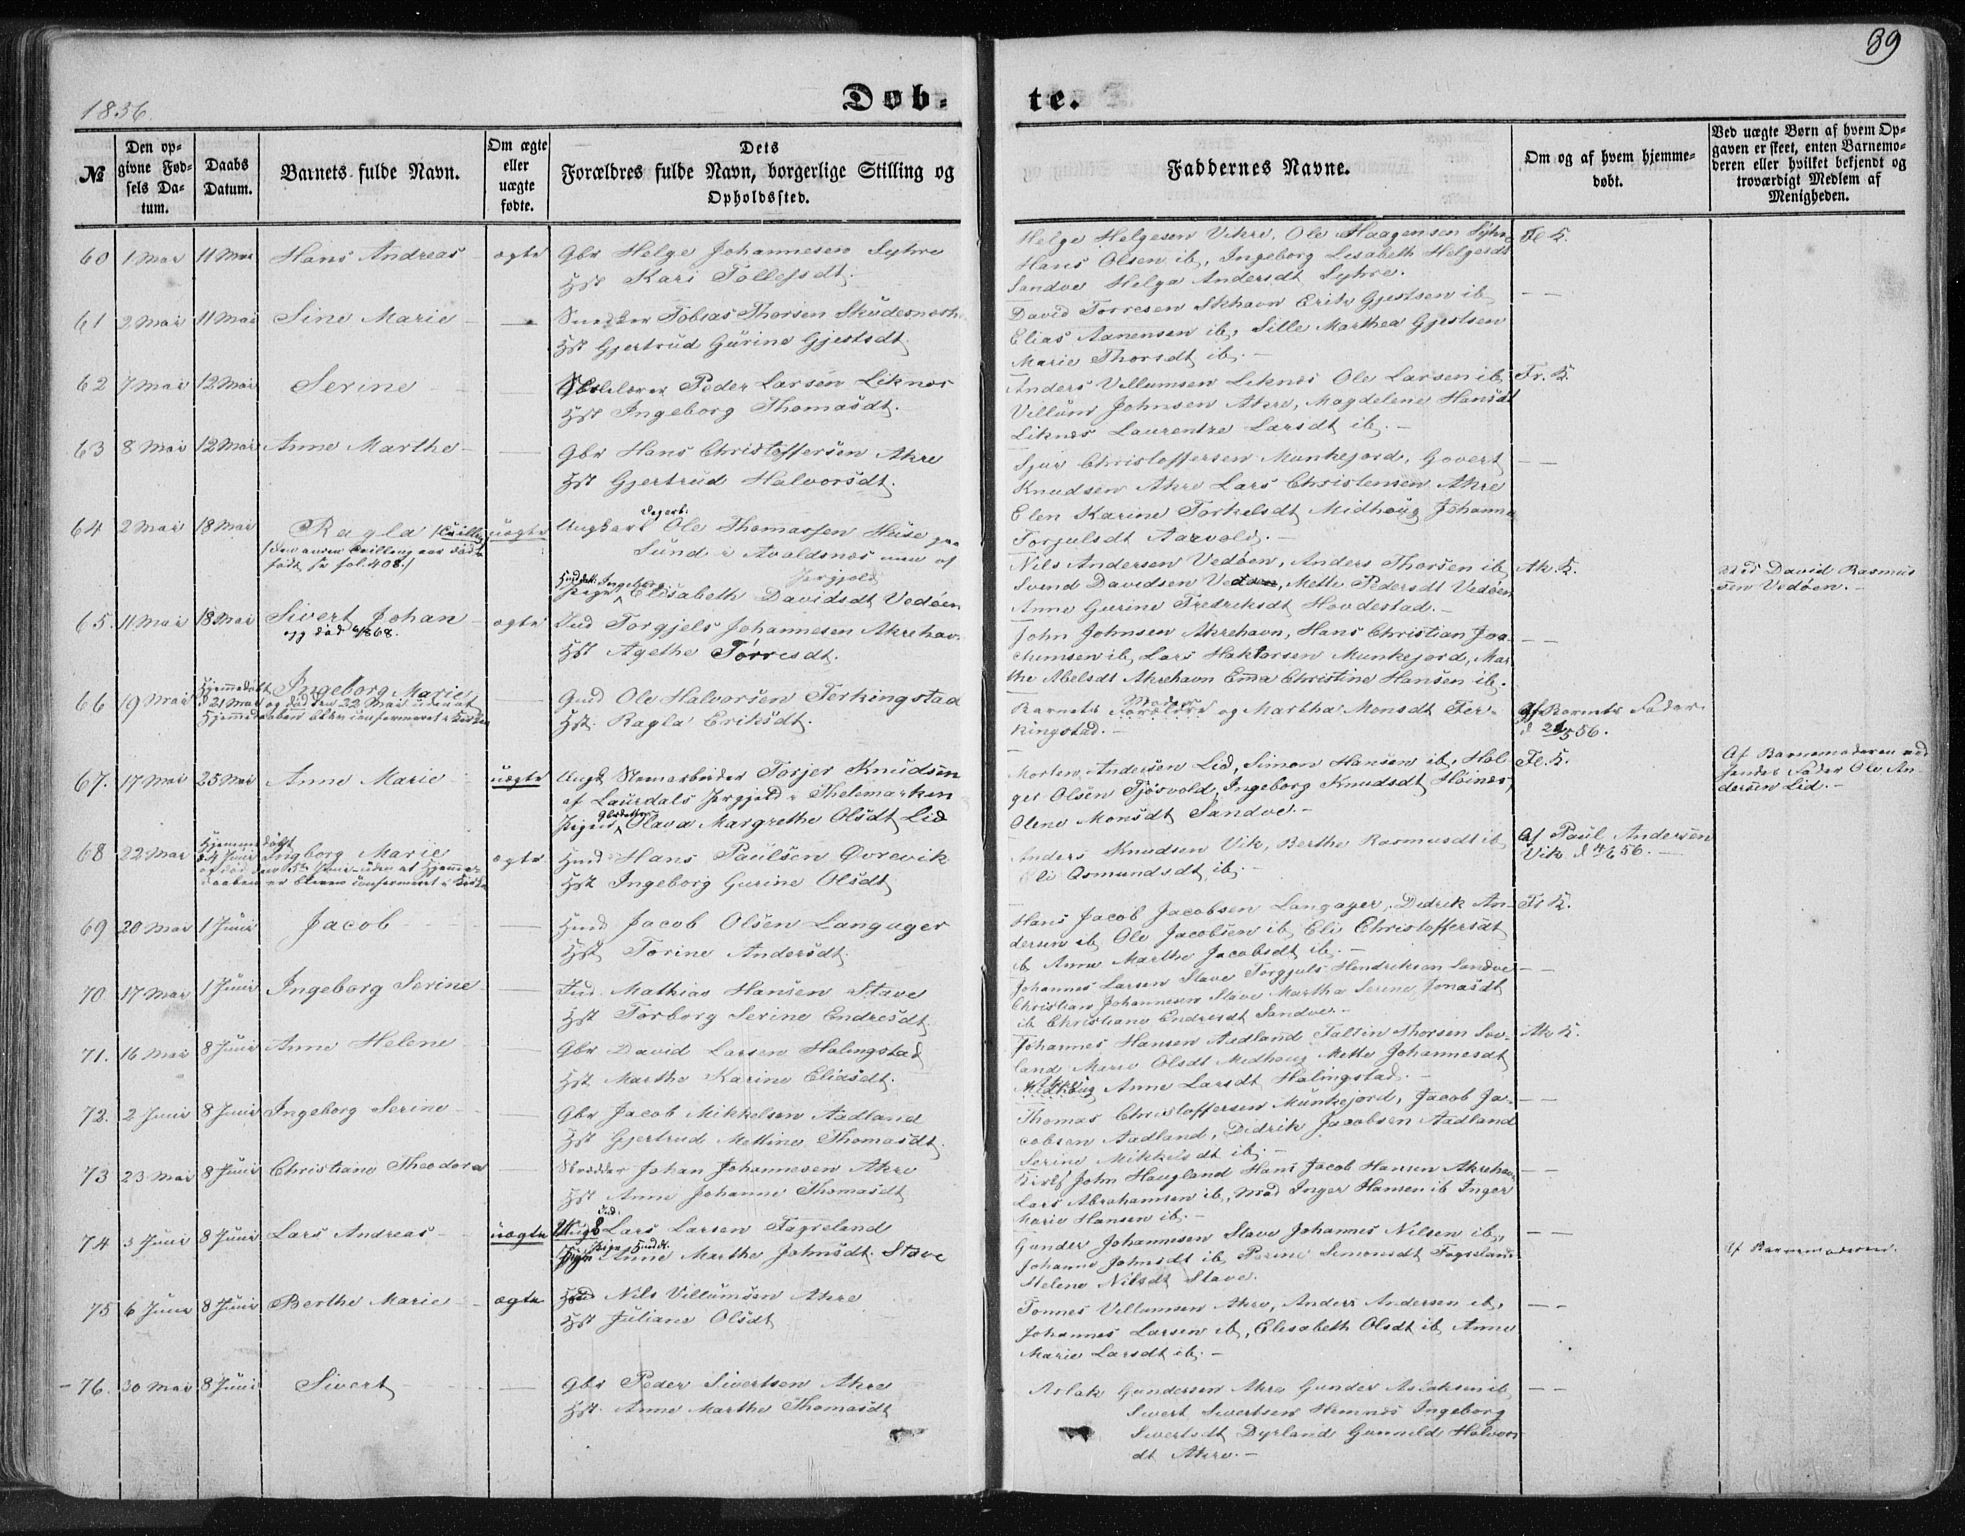 39
1856.
Døb-
te.
№
Den op-
givne Fød-
sels Da-
tum.
Daabs
Datum.
Barnets fulde Navn.
Om ægte
eller
uægte
fødte.
Dets
Forældres fulde Navn, borgerlige Stilling og
Opholdssted.
Faddernes Navne.
Om og af hvem hjemme-
døbt.
Ved uægte Børn af hvem Op-
gaven er skeet, enten Barnemo-
deren eller hvilket bekjendt og
troværdigt Medlem af
Menigheden.
60 1 Mai 11 Mai Hans Andreas - ægte Gbr Helge Johannesen Syhre
Hst Kari Tollefsdt.
Helge Helgesen Vikre, Ole Haagensen Syhre Fl. K.
Hans Olsen ib, Ingeborg Lisabeth Helgesdt
Sandve Helga Andersdt Syhre.
61 2 Mai 11 Mai Sine Marie - — Snedker Tobias Thorsen Skudesnæsh.
Hst Gjertrud Gurine Gjestsdt.
David Torresen Skhavn Erik Gjestsen ib, — —
Elias Aanensen ib, Sille Marthea Gjestsen
Marie Thorsdt ib. —
62 7 Mai 12 Mai Serine — Peder Larsen Liknes
Hst Ingeborg Thomasdt.
Anders Villumsen Liknes Ole Larsen ib, Fr. K.
Villum Johnsen Akre, Magdelene Hansdt
Liknes Laurentze Larsdt ib. —
63 8 Mai 12 Mai Anne Marthe — Gbr Hans Christoffersen Akre
Hst Gjertrud Halvorsdt.
Sjur Christoffersen Munkejord, Govert — —
Knudsen Akre Lars Christensen Akre
Elen Karine Torkelsdt Midhoug Johanna
Torjulsdt Aarvold. —
64 2 Mai 18 Mai Ragla /tvilling uægte Ungkarl Ole Thomassen Huse paa
/den anden tvilling var død
født se fol. 408./
Sund i Avaldsnes men af
Pige Ingeborg Elisabeth Davidsdt Vedøen
Nils Andersen Vedøen, Anders Thorsen ib Ak. K.
Svend Davidsen Vedøen, Mette Pedersdt Vedøen
Anne Gurine Fredriksdt Hovdestad. —
Ved David Rasmus
sen Vedøen. —
65. 11 Mai 18 Mai Sivert Johan - ægte Ind Torgjels Johannesen Akrehavn
Hst Agethe Torresdt.
John Johnsen Akrehavn, Hans Christian Joa- — —
chimsen ib, Lars Haktorsen Munkejord, Mar-
the Abelsdt Akrehavn Ema Christine Hansen ib.
66 19 Mai Hjemmedøbt Ingeborg Marie — Gmd Ole Halvorsen Ferkingstad
d 21 Mai og død den 22 Mai uden at
Hjemmedaaben blev confirmeret i Kirken
Hst. Ragla Eriksdt.
Barnets Moder og Martha Monsdt Fer- Af Barnets Fader
kingstad. — d 21/5 56.
67. 17 Mai 25 Mai Anne Marie uægte Ungk Stenarbeider Torjer Knudsen
af Laurdals Prgjeld i Thelemarken
Pigen Olava Margrethe Olsdt Lid
Morten Andersen Lid, Simon Hansen ib, Hol- Fl. K.
ger Olsen Tjøsvold, Ingeborg Knudsdt Høines,
Olene Monsdt Sandve. —
Af Barnemoderen ved
hendes Fader Ole An
dersen Lid. —
68 22 Mai Hjemmedøbt Ingborg Marie ægte Hmd Hans Paulsen Øvrevik
d 4 Juni
og død den 5te Juni uden at Hjemme-
daaben er bleven confirmeret i Kirken
Hst Ingeborg Gurine Olsdt
Anders Knudsen Vik, Berthe Rasmusdt ib Af Paul Andersen
Eli Osmundsdt ib. — Vik d 4/6 56. —
69 20 Mai 1 Juni Jacob - — Hmd Jacob Olsen Langager
Hst Torine Andersdt.
Hans Jacob Jacobsen Langager, Didrik An- Fr K.
dersen ib Ole Jacobsen ib Eli Christoffersdt
ib Anne Marthe Jacobsdt ib. —
70 17 Mai 1 Juni Ingeborg Serine — Ind. Mathias Hansen Stave
Hst Torborg Serine Endresdt.
Johannes Larsen Stave Torgjuls Hendriksen Sandve — —
Christian Johannesen Stave Martha Serine Jonasdt
ib Christiane Endresdt Sandve. —
71. 16 Mai 8 Juni Anne Helene - — Gbr David Larsen Halingstad
Hst Marthe Karine Eliasdt.
Johannes Hansen Aadland Faltin Thorsen Sov- Ak K.
land Marie Olsdt Medhoug Mette Johannesdt
Anne Larsdt Halingstad. —
72. 2 Juni 8 Juni Ingeborg Serine - — Gbr Jacob Mikkelsen Aadland
Hst Gjertrud Mettine Thomasdt.
Thomas Christoffersen Munkejord, Jacob Ja- — —
cobsen Aadland, Didrik Jacobsen Aadland
Serine Mikkelsdt ib. —
73 23 Mai 8 Juni Christiane Theodora — Skrædder Johan Johannesen Akre
Hst Anne Johanne Thomasdt
John Haugland Hans Jacob Hansen Akrehavn — —
Lars Abrahamsen ib, Mad Inger Hansen ib Inger
Marie Hansen ib. —
74 3 Juni 8 Juni Lars Andreas - uægte Ungk Lars Larsen Fagreland
Pige Anne Marthe Johnsdt. Stave
Gunder Johannesen Stave Johannes Nilsen ib, — —
Johanne Johnsdt ib, Perine Simonsdt Fagreland
Helene Nilsdt Stave.
Af Barnemoderen.
75 6 Juni 8 Juni Berthe Marie - ægte Hmd Nils Villumsen Akre
Hst Juliane Olsdt
Tonnes Villumsen Akre, Anders Andersen ib, — —
Johannes Larsen ib, Elisabeth Olsdt ib, Anne
Marie Larsdt ib. —
76. 30 Mai 8 Juni Sivert - — Gbr Peder Sivertsen Akre
Hst. Anne Marthe Thomasdt
Aslak Gundersen Akre Gunder Aslaksen ib, — —
Sivert Sivertsen Hemnes Ingeborg
Sivertsdt Dyrland Gunnilde Halvors
dt Akre. —